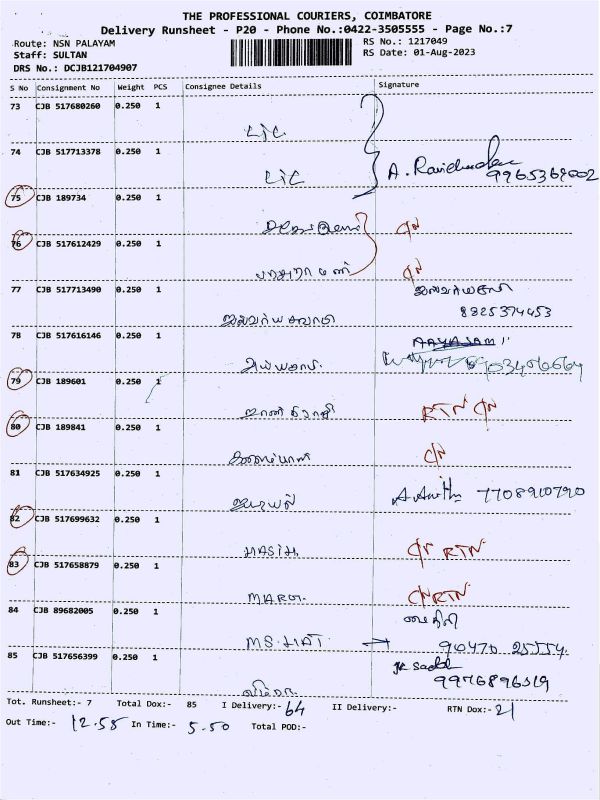 THE PROFESSIONAL COURIERS, COIMBATORE
Delivery Runsheet - P20 - Phone No.:0422-3505555 - Page No.:7
Route: NSN PALAYAM RS No.: 1217049
Staff: SULTAN RS Date: 01-Aug-2023
DRS No.: DCJB121704907
S No Consignment No Weight PCS Consignee Details Signature
73 CJB 517680260 0.250 1
LIC
74 CJB 517713378 0.250 1
LIC A. Ravichandran
9965369002
75 CJB 189734 0.250 1
C/N
76 CJB 517612429 0.250 1
C/N
77 CJB 517713490 0.250 1
8325374453
78 CJB 517616146 0.250 1 AAYASAMI
8903406664
79 CJB 189601 0.250 1
RTN C/N
80 CJB 189841 0.250 1
C/N
81 CJB 517634925 0.250 1
7708910790
82 CJB 517699632 0.250 1
HASIM C/N RTN
83 CJB 517658879 0.250 1
C/N RTN
84 CJB 89682005 0.250 1
MS. HAT → 90470 25554.
85 CJB 517656399 0.250 1
9976896519
Tot. Runsheet:- 7 Total Dox:- 85 I Delivery:- 64 II Delivery:- RTN Dox:- 21
Out Time:- 12.55 In Time:- 5.50 Total POD:-